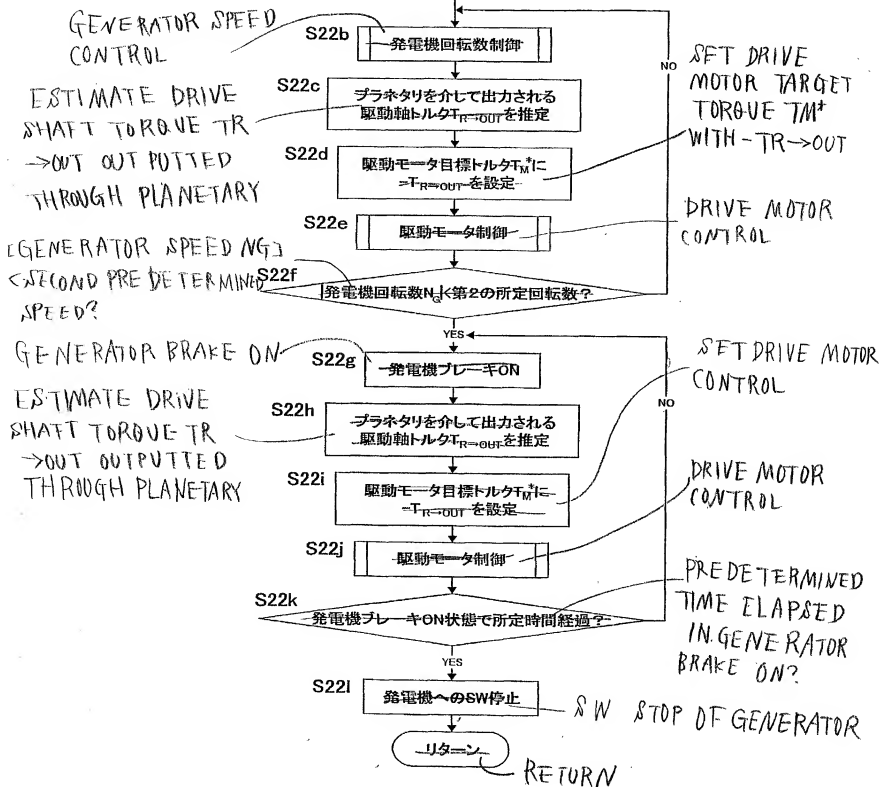 GENERATOR SPEED
CONTROL
S22b
発電機回転数制御
NO
SET DRIVE
MOTOR TARGET
TORQUE TM*
WITH - TR→OUT
ESTIMATE DRIVE
SHAFT TORQUE TR
→OUT OUT PUTTED
THROUGH PLANETARY
S22c
プラネタリを介して出力される
駆動軸トルクTR→OUTを推定
S22d
駆動モータ目標トルクTM*に
-TR→OUTを設定
S22e
駆動モータ制御
DRIVE MOTOR
CONTROL
[GENERATOR SPEED NG]
<SECOND PREDETERMINED
SPEED?
S22f
|発電機回転数NG|<第2の所定回転数?
YES
GENERATOR BRAKE ON
S22g
発電機ブレーキON
SET DRIVE MOTOR
CONTROL
NO
ESTIMATE DRIVE
SHAFT TORQUE TR
→OUT OUTPUTTED
THROUGH PLANETARY
S22h
プラネタリを介して出力される
駆動軸トルクTR→OUTを推定
S22i
駆動モータ目標トルクTM*に
-TR→OUTを設定
DRIVE MOTOR
CONTROL
S22j
駆動モータ制御
S22k
発電機ブレーキON状態で所定時間経過?
PREDETERMINED
TIME ELAPSED
IN GENERATOR
BRAKE ON?
YES
S22l
発電機へのSW停止
SW STOP OF GENERATOR
リターン
RETURN